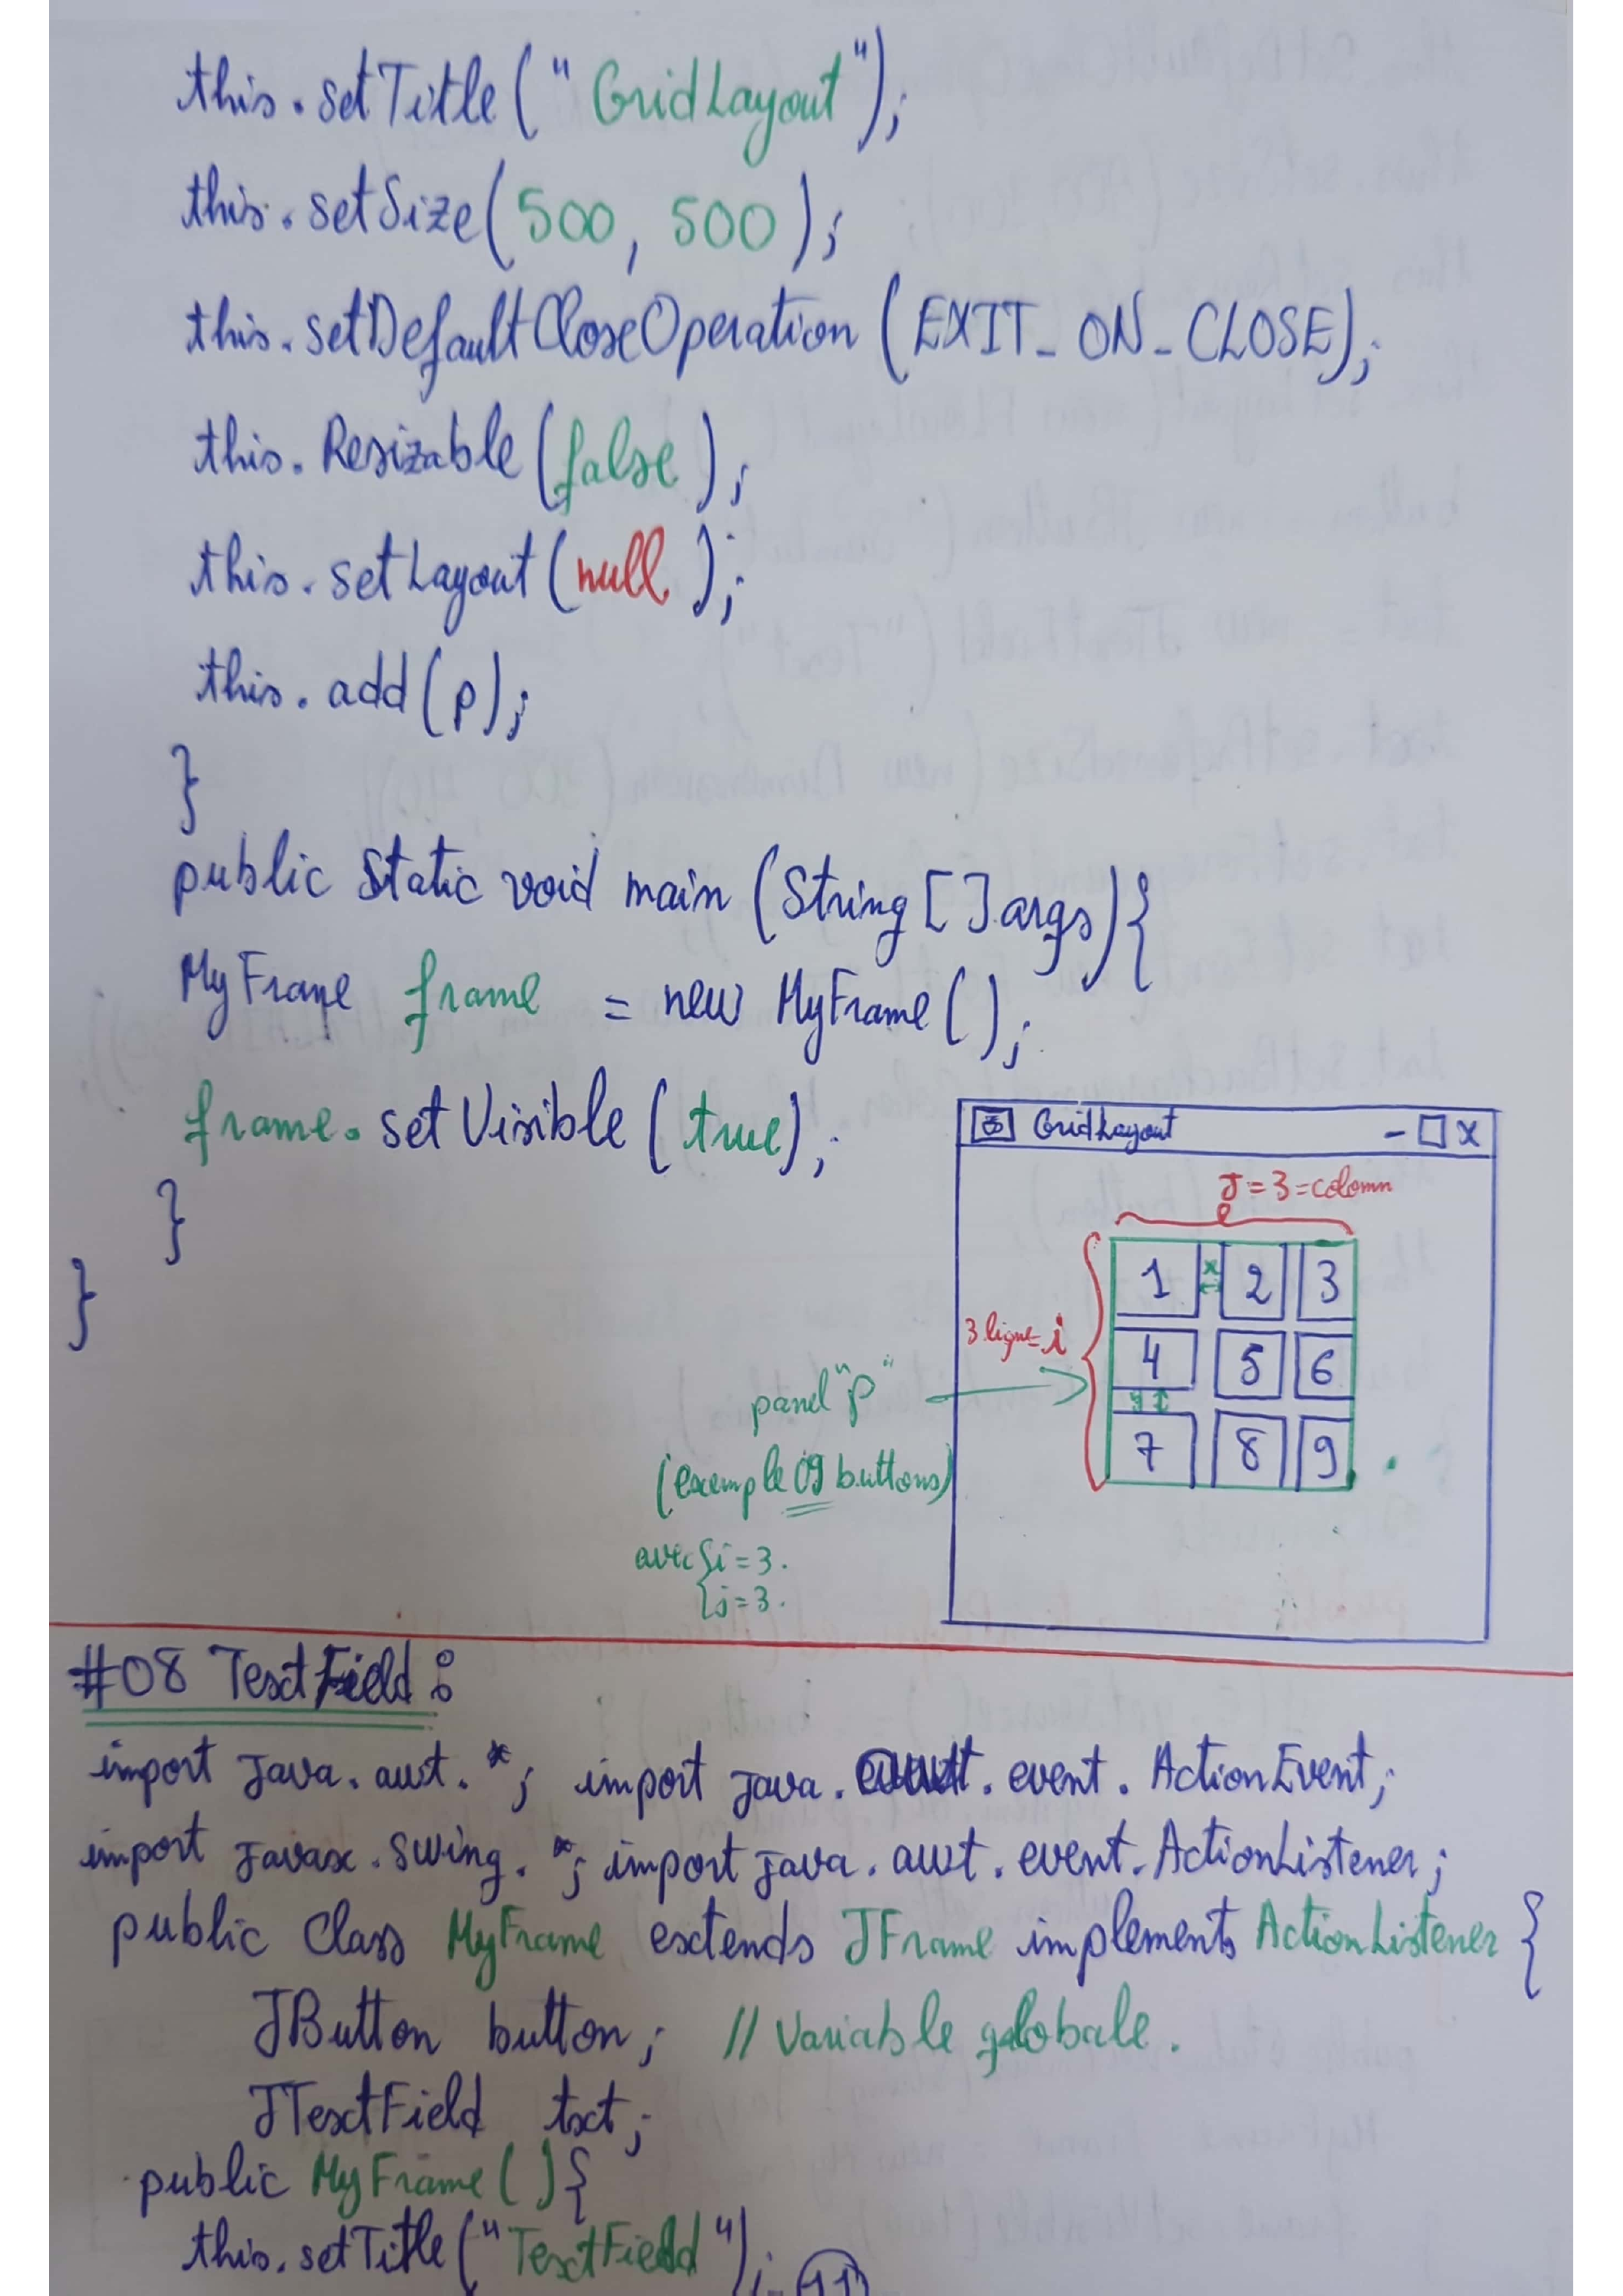 this.setTitle("GridLayout");
this.setSize(500, 500);
this.setDefaultCloseOperation(EXIT_ON_CLOSE);
this.Resizable(false);
this.setLayout(null);
this.add(p);
}
public static void main(String[] args){
MyFrame frame = new MyFrame();
frame.setVisible(true);
}
}
GridLayout - □ x
J=3=colomn
1 x 2 3
3 ligne=i
4 5 6
y
7 8 9
panel "p"
(exemple 09 buttons)
avec { i=3.
j=3.
#08 TextField:
import java.awt.*; import java.awt.event.ActionEvent;
import javax.swing.*; import java.awt.event.ActionListener;
public Class MyFrame extends JFrame implements ActionListener {
JButton button; // Variable globale.
JTextField txt;
public MyFrame(){
this.setTitle("TextField");
11